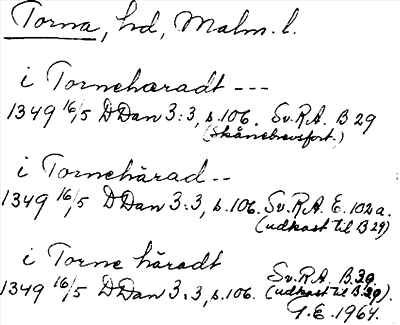 Torna, hd, Malm. l.
i Torneharadt ---
1349 16/5 DDan 3:3, s. 106. Sv. R.A. B 29
(Skånebrevsfört.)
i Tornehärad --
1349 16/5 DDan 3:3, s. 106. Sv. R.A. E. 102a.
(udkast til B 29)
i Torne häradt Sv. R.A. B. 29
1349 16/5 DDan 3:3, s. 106. (udkast til B. 29).
G.E. 1964.